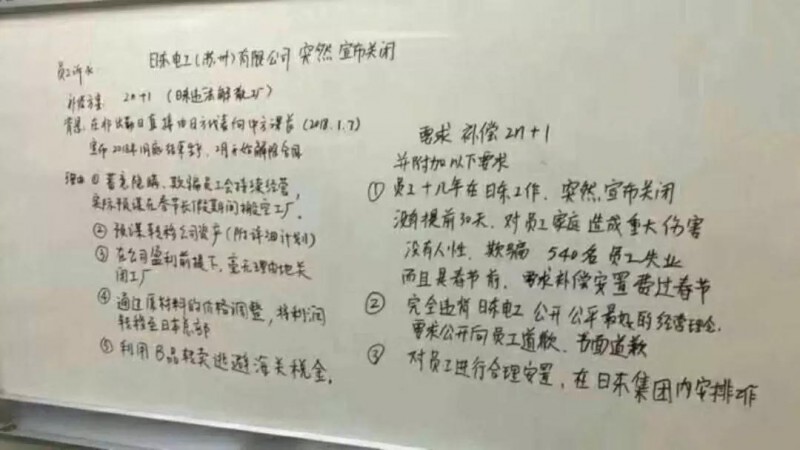 日东电工(苏州)有限公司 突然 宣布关闭
员工诉求
补偿方案: 2n+1 (日东违法解散工厂)
背景: 在非出勤日直接由日方代表向中方课长 (2018.1.7)
宣布2018年1月底结束生产, 2月开始解除合同
理由 ① 蓄意隐瞒、欺骗员工会持续经营,
实际预谋在春节长假期间搬空工厂。
② 预谋转移公司资产 (附详细计划)
③ 在公司盈利前提下, 毫无理由地关
闭工厂
④ 通过原材料的价格调整, 将利润
转移至日本总部
⑤ 利用B品转卖逃避海关税金。
要求 补偿 2n+1
并附加以下要求
① 员工十几年在日东工作, 突然宣布关闭
没有提前30天, 对员工家庭造成重大伤害
没有人性, 欺骗 540名员工失业
而且是春节前, 要求补偿安置费过春节
② 完全违背日东电工公开公平最好的经营理念。
要求公开向员工道歉、书面道歉
③ 对员工进行合理安置, 在日东集团内安排工作